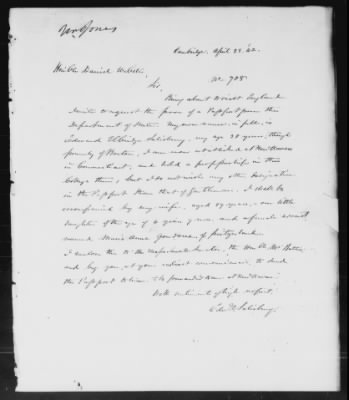 Mr Jones
Cambridge. April 22 '42.
Hon'ble Daniel Webster,
No 708.
Sir,
Being about to visit England
I write to request the favor of a Passport from the
Department of State. My own name, in full, is
Edward Elbridge Salisbury, my age 28 years, though
formerly of Boston, I am now established at New Haven
in Connecticut, and hold a professorship in the
College there, but I do not wish any other designation
in the Passport than that of Gentleman. I shall be
accompanied by my wife, aged 29 years, our little
daughter of the age of 4 years, and a female servant
named Marie Anne of Switzerland.
I enclose this to the Massachusetts Senator, the Hon.
and beg you, at your earliest convenience, to send
the Passport to him to forward to me at New Haven.
With sentiments of high respect,
Edw. E. Salisbury.